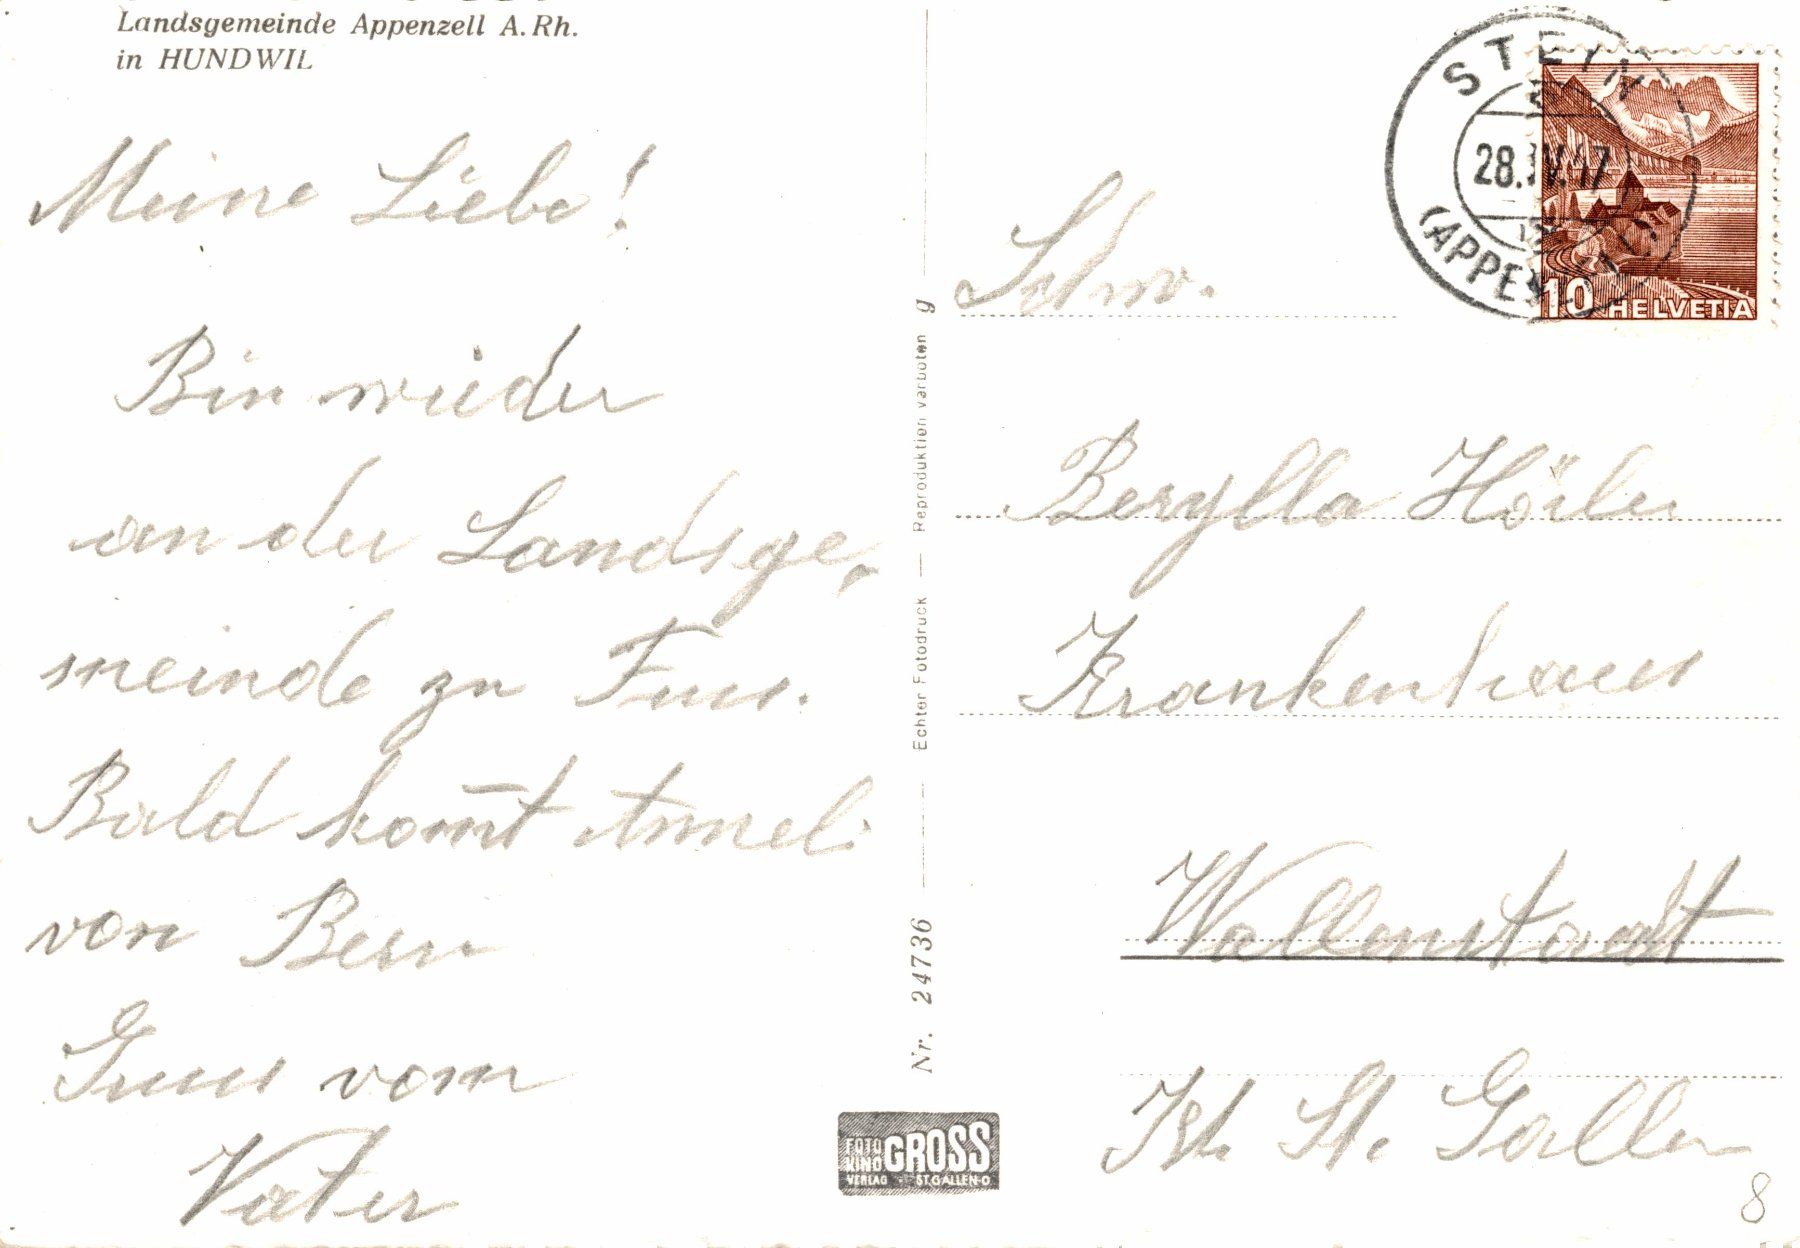 Landsgemeinde Appenzell A. Rh.
in HUNDWIL
Meine Liebe!
Bin wieder
an der Landsge,
meinde zu Fuss.
Bald kom̄t Anneli
von Bern
Gruss vom
Vater
Echter Fotodruck — Reproduktion verboten g
Nr. 24736
FOTO
KINO GROSS
VERLAG ST.GALLEN-O
STEIN
28.IV.47
(APPENZ
10 HELVETIA
Schw.
Berylla Höiler
Krankenhaus
Wallenstadt
Kt. St. Gallen
8